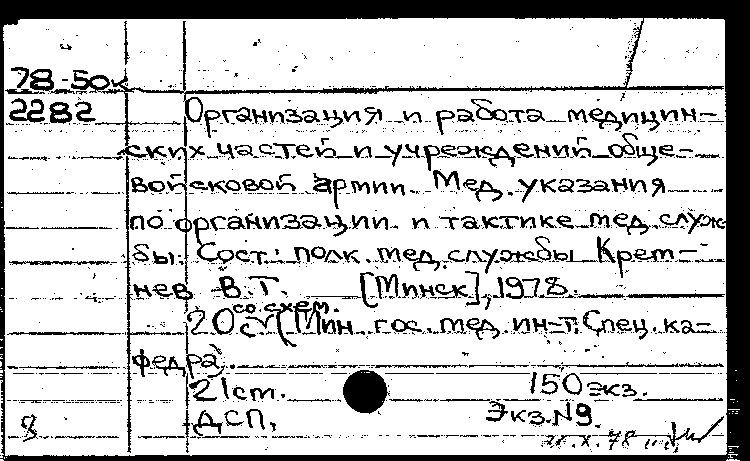 78-50к
2282
Организация и работа медицин-
ских частей и учреждений обще-
войсковой армии. Мед. указания
по организации и тактике мед. служ-
бы. Сост.: полк. мед. службы Крет-
нев В.Т. [Минск], 1978.
20 с. со схем. (Мин. гос. мед. ин-т. Спец. ка-
федра).
21 ст. 150 экз.
ДСП. Экз. №9.
8 20.X.78